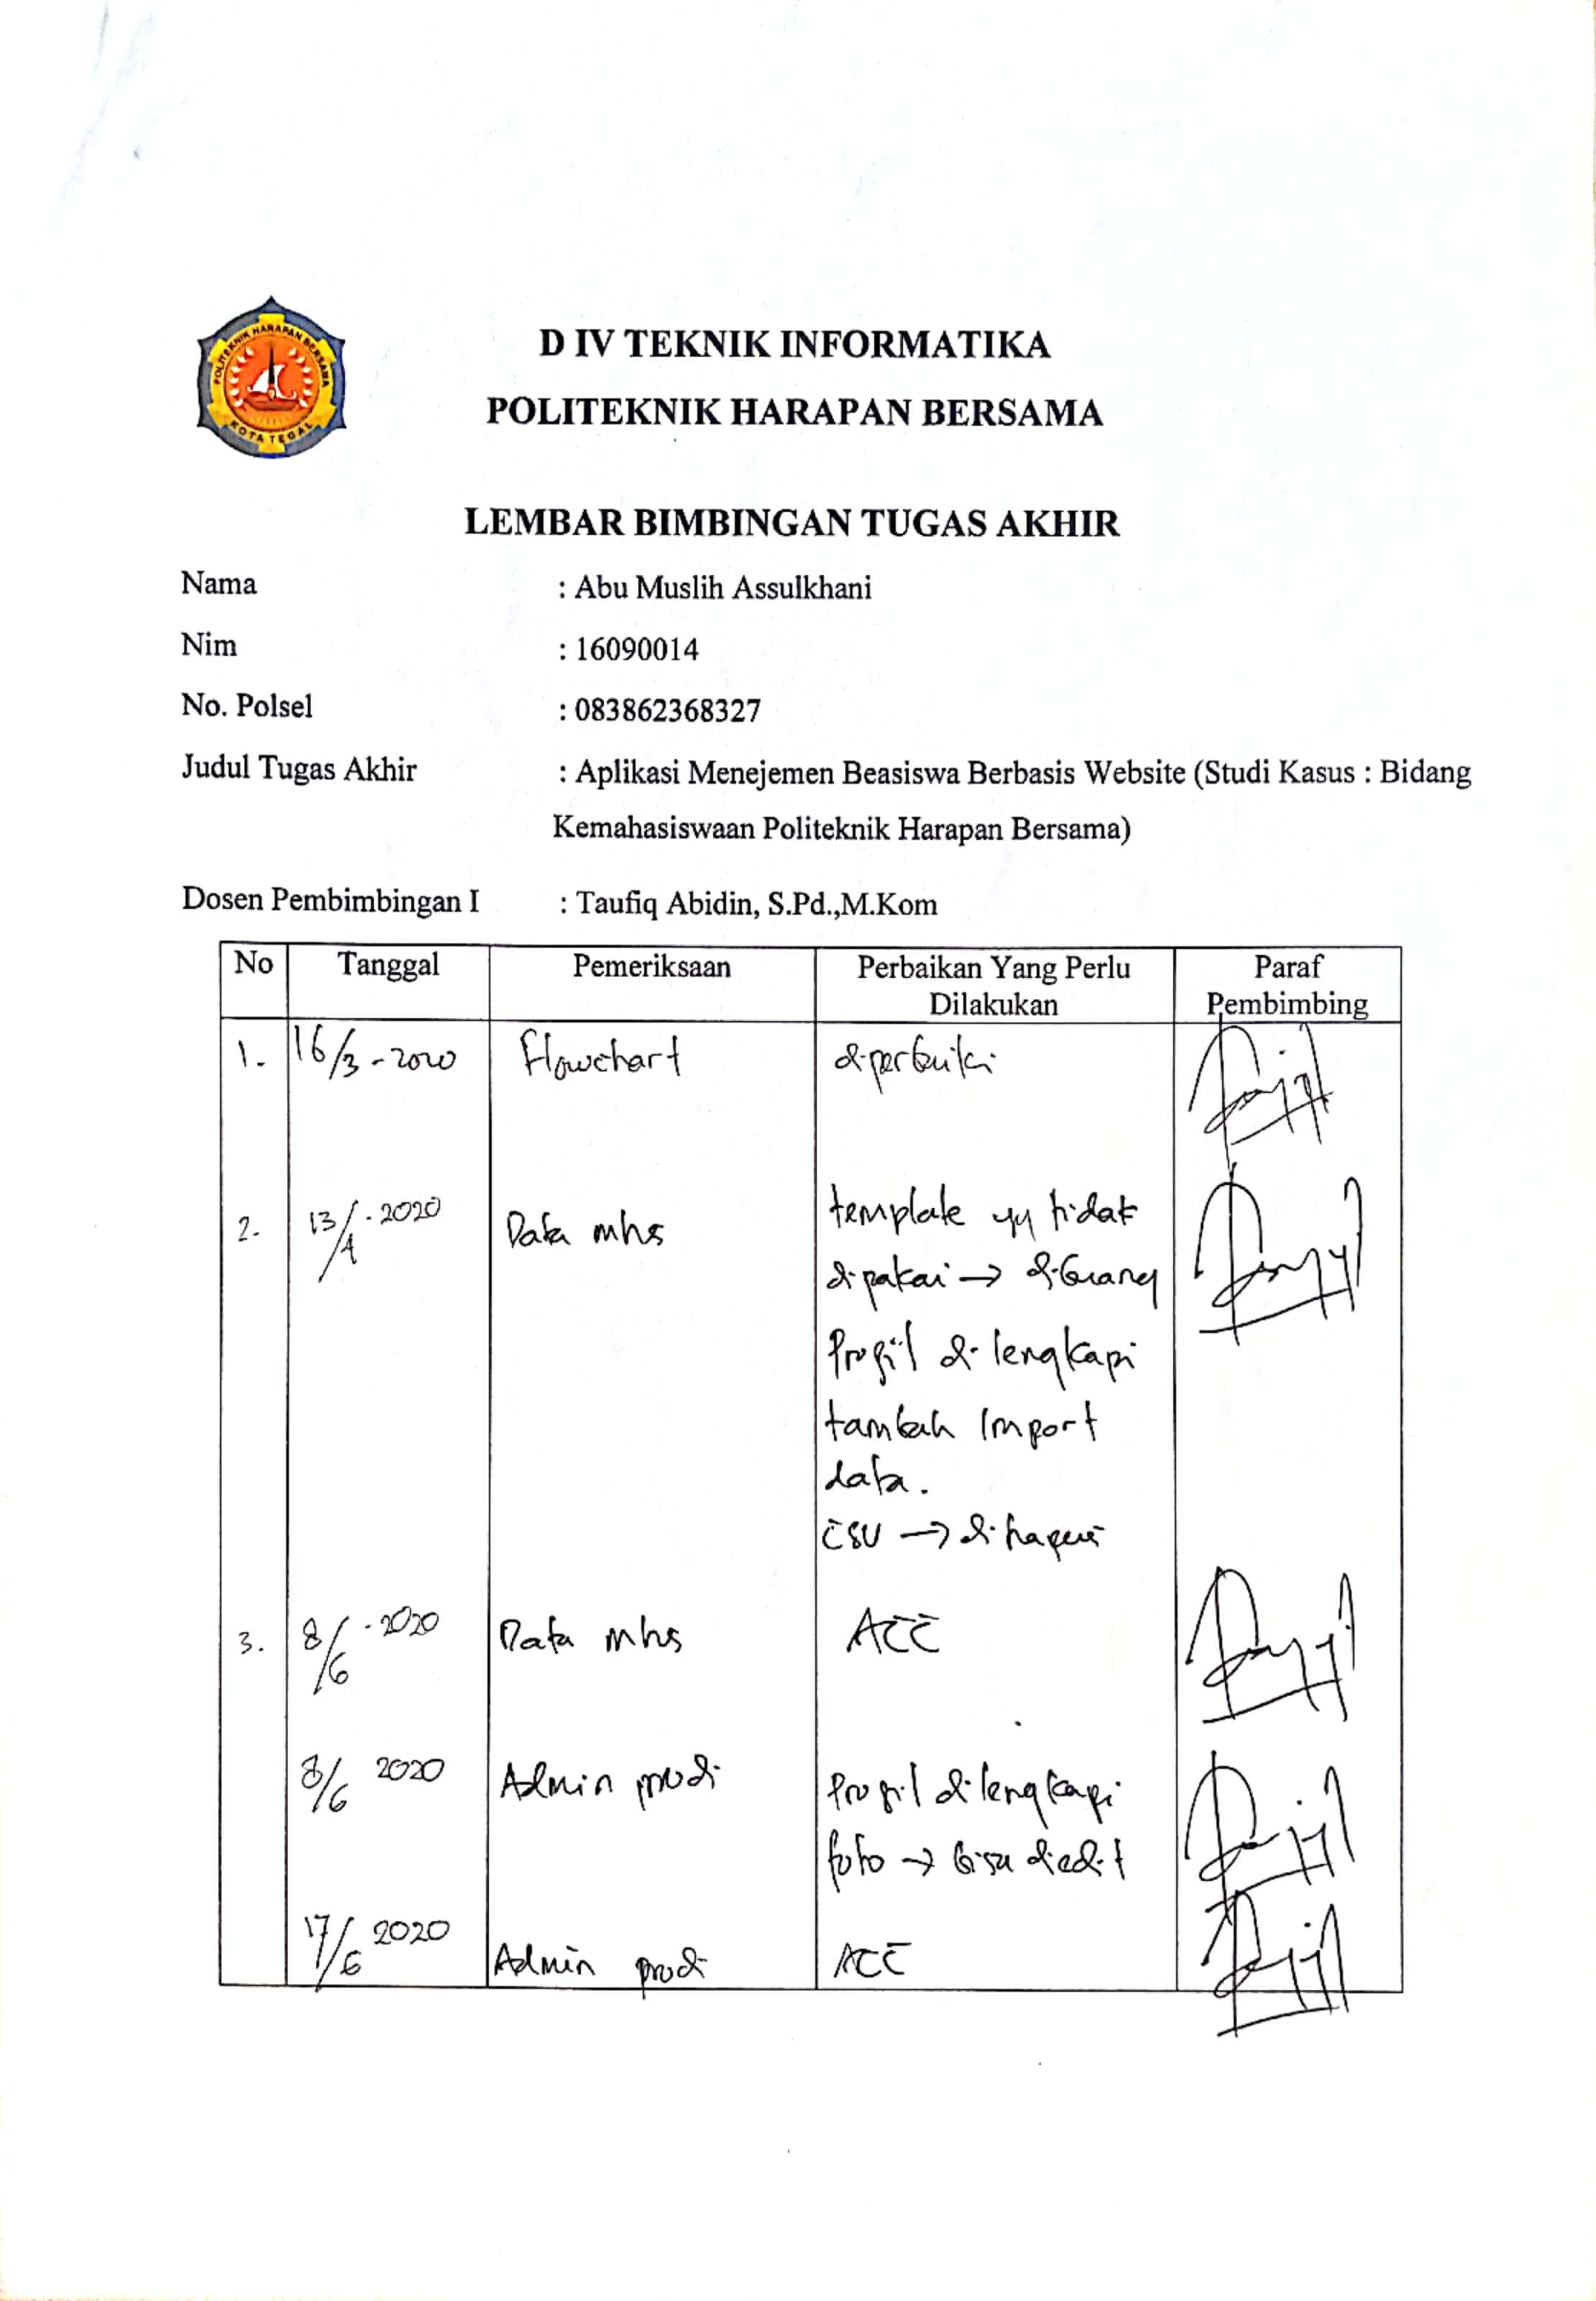 POLITEKNIK HARAPAN BERSAMA
KOTA TEGAL
D IV TEKNIK INFORMATIKA
POLITEKNIK HARAPAN BERSAMA
LEMBAR BIMBINGAN TUGAS AKHIR
Nama : Abu Muslih Assulkhani
Nim : 16090014
No. Polsel : 083862368327
Judul Tugas Akhir : Aplikasi Menejemen Beasiswa Berbasis Website (Studi Kasus : Bidang
Kemahasiswaan Politeknik Harapan Bersama)
Dosen Pembimbingan I : Taufiq Abidin, S.Pd.,M.Kom
No Tanggal Pemeriksaan Perbaikan Yang Perlu Dilakukan Paraf Pembimbing
1. 16/3-2020 Flowchart diperbaiki
2. 13/4-2020 Data mhs template yg tidak
dipakai → dibuang
Profil di lengkapi
tambah Import
data.
CSV → di hapus
3. 8/6-2020 Data mhs ACC
8/6 2020 Admin prodi Profil dilengkapi
foto → bisa diedit
17/6 2020 Admin prodi ACC